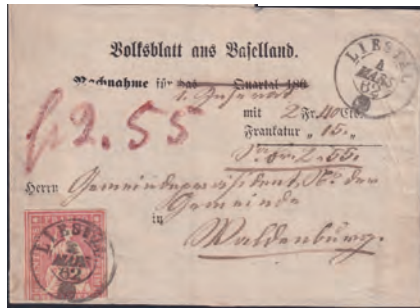 Volksblatt aus Baselland.
LIESTAL
4
MÄRS
62
Nachnahme für das Quartal 186
1. Inserat
mit 2 Fr. 40 Cts.
Frankatur „ 15. „
Fr. 2. 55.
f 2.55
Herrn Gemeindepräsident, der
Gemeinde
in
Waldenburg.
LIESTAL
4
MÄRS
62